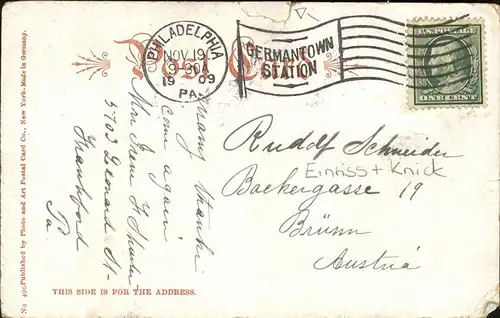 Post Card
PHILADELPHIA
NOV 19
9-30A
1909
PA.
GERMANTOWN
STATION
U.S. POSTAGE
ONE CENT
Rudolf Schneider
Einriss + Knick
Backergasse 19
Brünn
Austria
Many thanks
come again
Miss Irene F.
5703 Leonard St-
Frankford
Pa
THIS SIDE IS FOR THE ADDRESS.
Published by Photo and Art Postal Card Co., New York. Made in Germany.